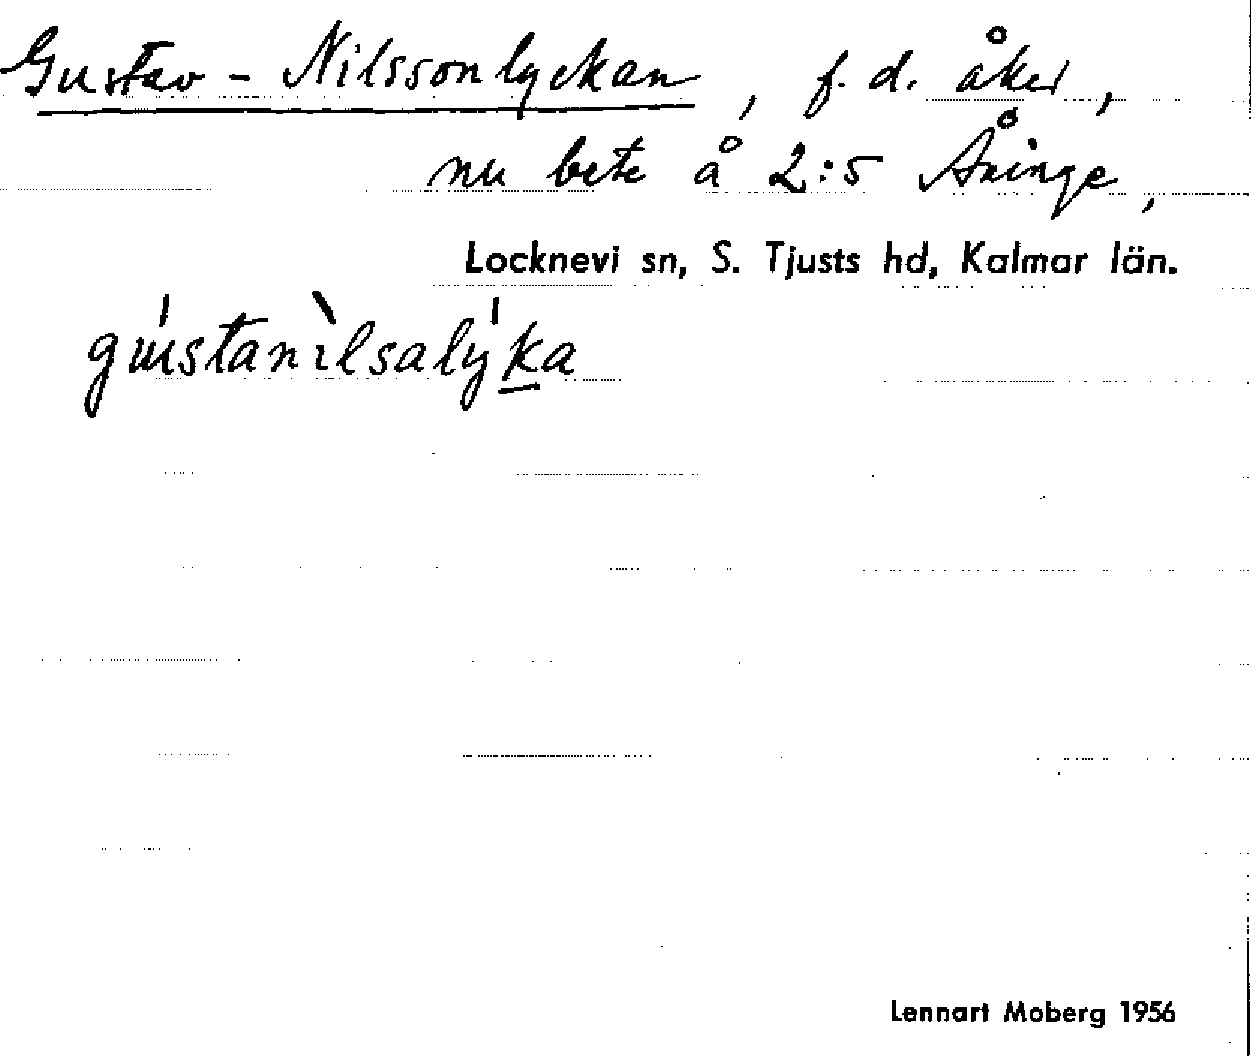 Gustav-Nilssonlyckan, f.d. åker,
nu bete å 2:5 Åninge,
Locknevi sn, S. Tjusts hd, Kalmar län.
gústanìlsalýka
Lennart Moberg 1956